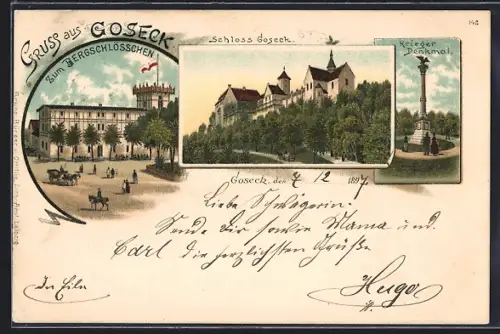 148
Gruss aus GOSECK
Zum BERGSCHLÖSSCHEN
Schloss Goseck.
Krieger
Denkmal.
Goseck, den 7 12 1897
Liebe Schwägerin!
Sende Dir sowie Mama und
Carl die herzlichsten Grüße
In Eile
Hugo